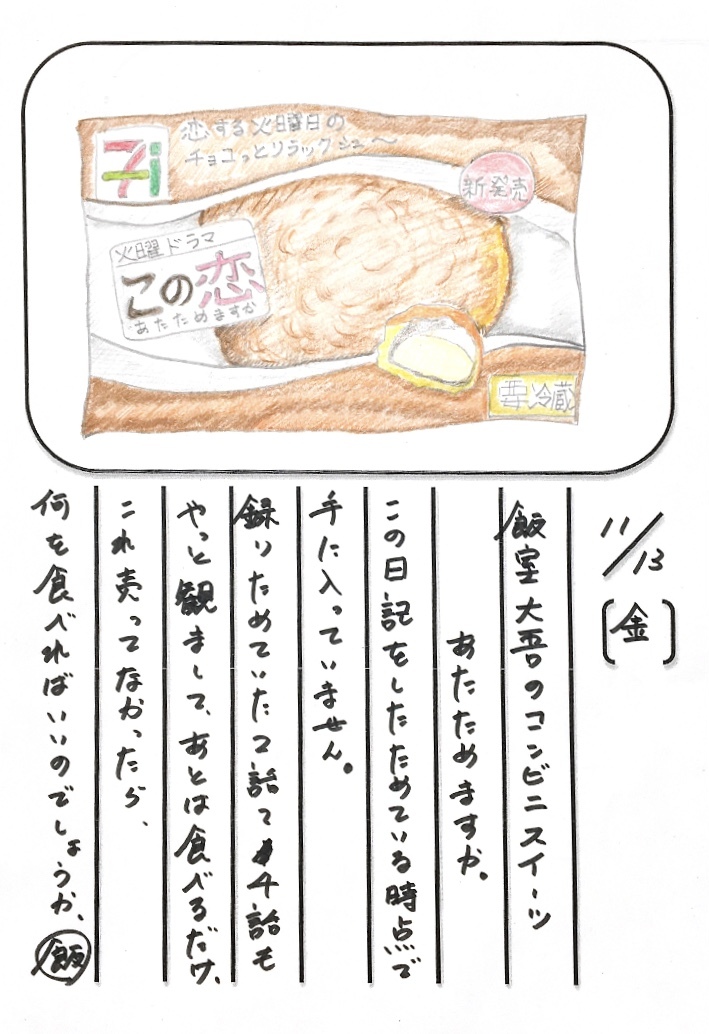 恋する火曜日の
チョコっとリラックシュ〜
新発売
火曜ドラマ
この恋
あたためますか
要冷蔵
11/13
(金)
飯室大吾のコンビニスイーツ
あたためますか。
この日記をしたためている時点で
手に入っていません。
録りためていた2話て4話も
やっと観まして、あとは食べるだけ、
これ売ってなかったら、
何を食べればいいのでしょうか、
飯